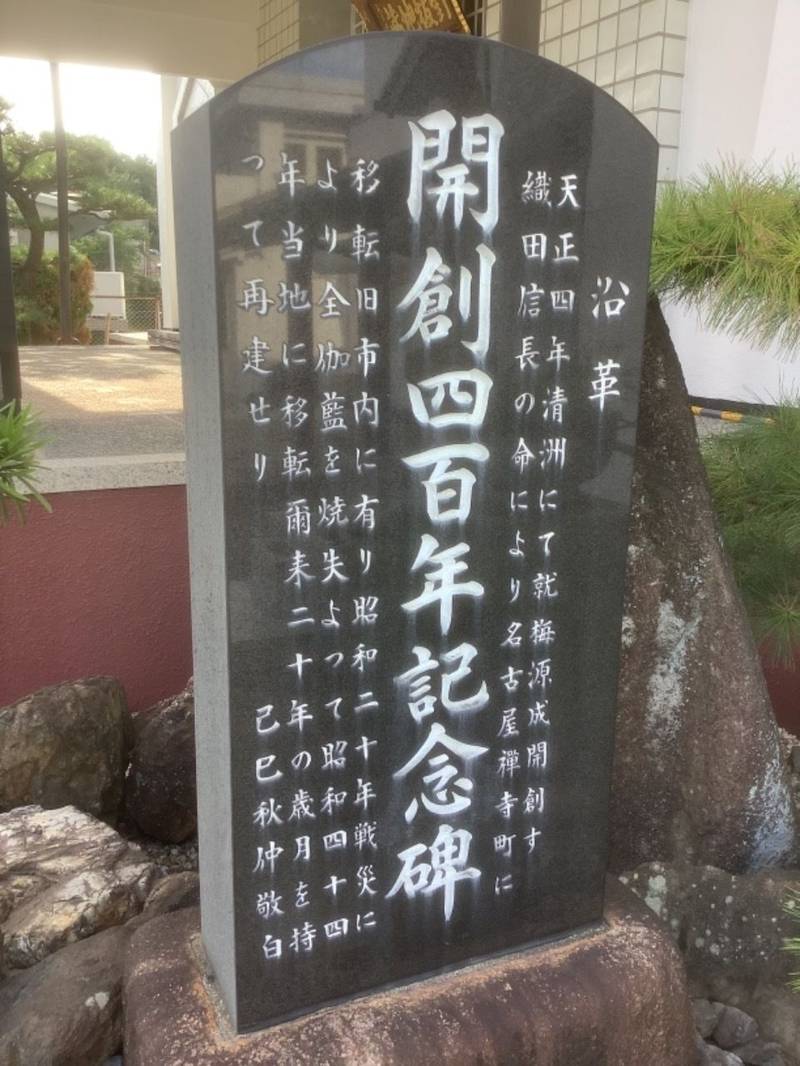 沿革
天正四年清洲にて就梅源成開創す
織田信長の命により名古屋禅寺町に
開創四百年記念碑
移転旧市内に有り昭和二十年戦災に
より全伽藍を焼失よって昭和四十四
年当地に移転爾来二十年の歳月を持
って再建せり
己巳秋仲敬白